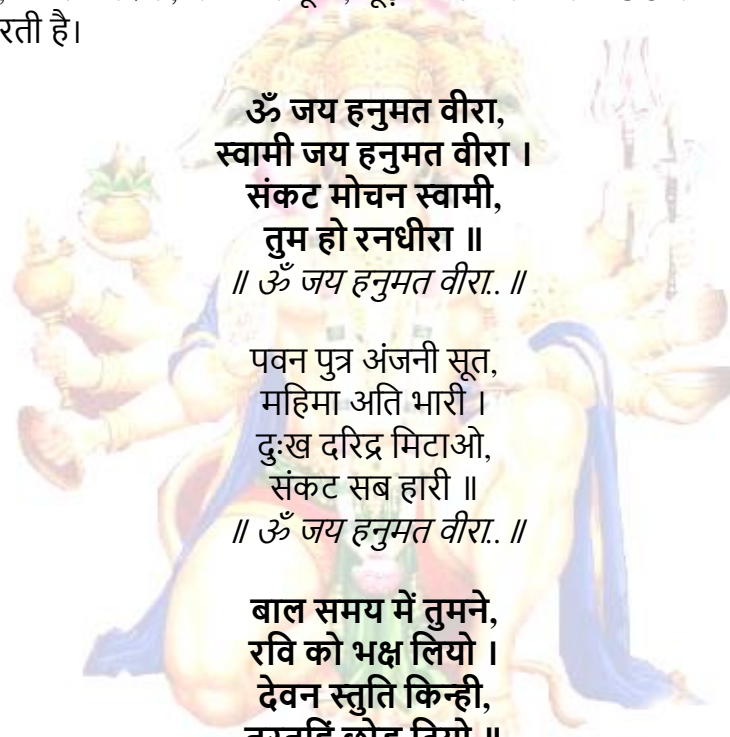 रती है।
ॐ जय हनुमत वीरा,
स्वामी जय हनुमत वीरा ।
संकट मोचन स्वामी,
तुम हो रनधीरा ॥
॥ ॐ जय हनुमत वीरा.. ॥
पवन पुत्र अंजनी सूत,
महिमा अति भारी ।
दुःख दरिद्र मिटाओ,
संकट सब हारी ॥
॥ ॐ जय हनुमत वीरा.. ॥
बाल समय में तुमने,
रवि को भक्ष लियो ।
देवन स्तुति किन्ही,